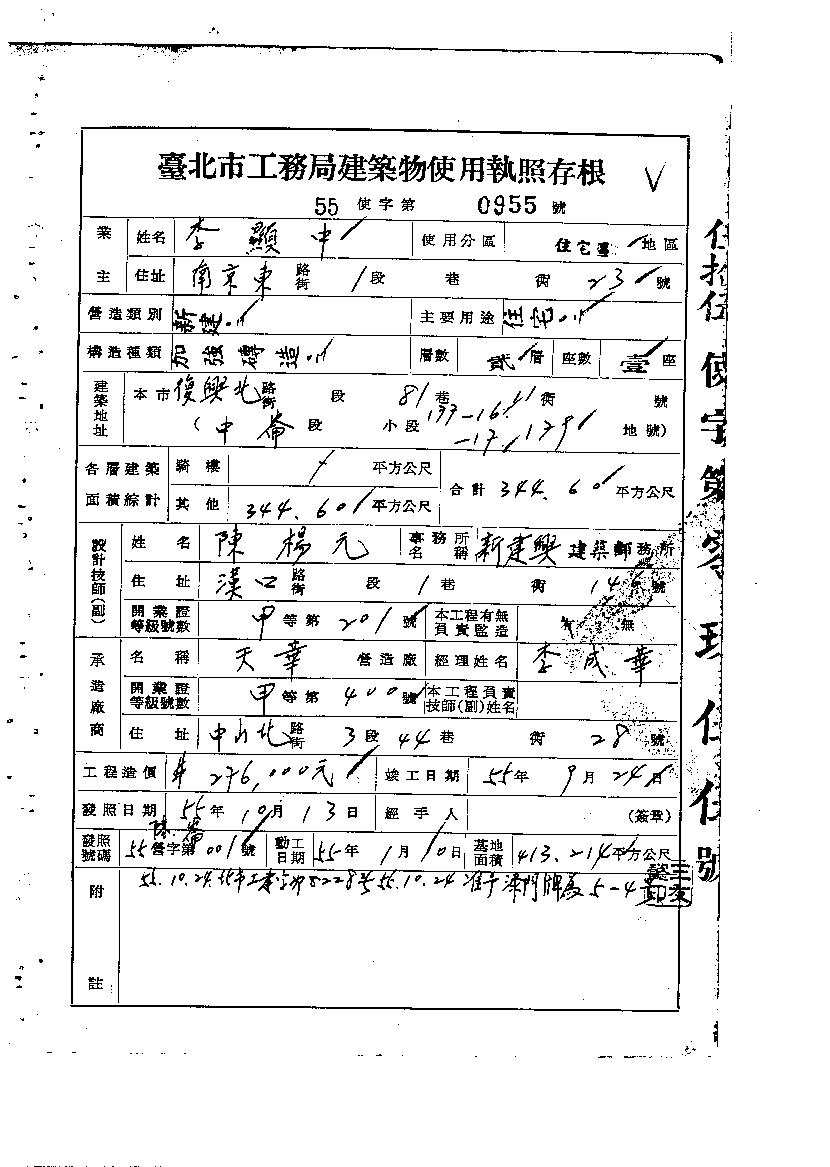 臺北市工務局建築物使用執照存根 V
55 使字第 0955 號
業主 姓名 李顯中 使用分區 住宅區 地區
住址 南京東路街 1段 巷 街 23號
營造類別 新建 主要用途 住宅
構造種類 加強磚造 層數 貳層 座數 壹座
建築地址 本市 復興北路街 段 81巷 街 號
(中崙段 小段 133-16 -17 179 地號)
各層建築面積綜計 騎樓 / 平方公尺 合計 344.60 平方公尺
其他 344.60 平方公尺
設計技師(副) 姓名 陳楊元 事務所名稱 新建興建築師事務所
住址 漢口路街 段 1巷 街 146號
開業證等級號數 甲等第201號 本工程有無負責監造 無
承造廠商 名稱 天華營造廠 經理姓名 李成華
開業證等級號數 甲等第400號 本工程負責技師(副)姓名
住址 中山北路街 3段 44巷 街 28號
工程造價 276,000元 竣工日期 55年9月24日
發照日期 55年10月13日 經手人 (簽章)
發照號碼 55營字第001號 動工日期 55年1月10日 基地面積 413.214平方公尺
附註 55.10.24.北市工建字第8228號55.10.24准予 門牌為5-4
伍拾伍使字第零 玖伍伍號